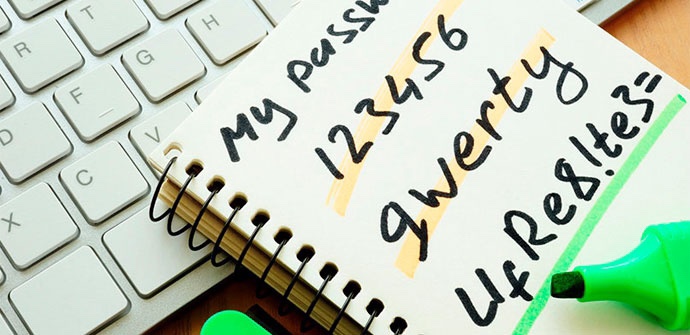 My passw
123456
qwerty
UfRe8!te3=
R
T
F
G
H
D
C
V
X